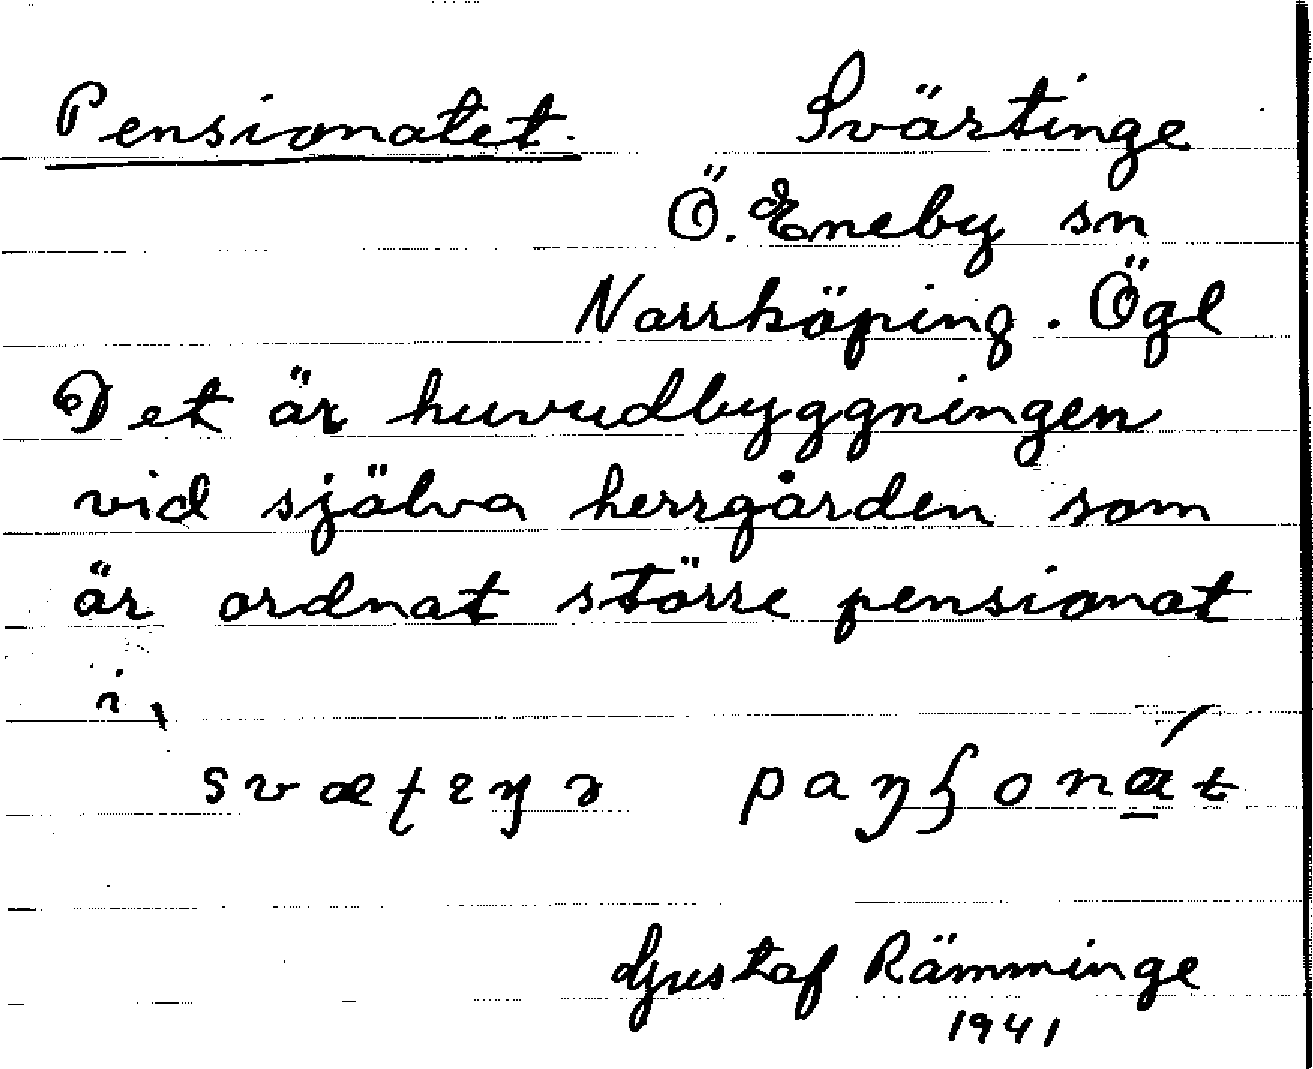 Pensionatet. Svärtinge
Ö. Eneby sn
Norrköping. Ögl
Det är huvudbyggningen
vid själva herrgården som
är ordnat större pensionat
i,
Gustaf Rämminge
1941